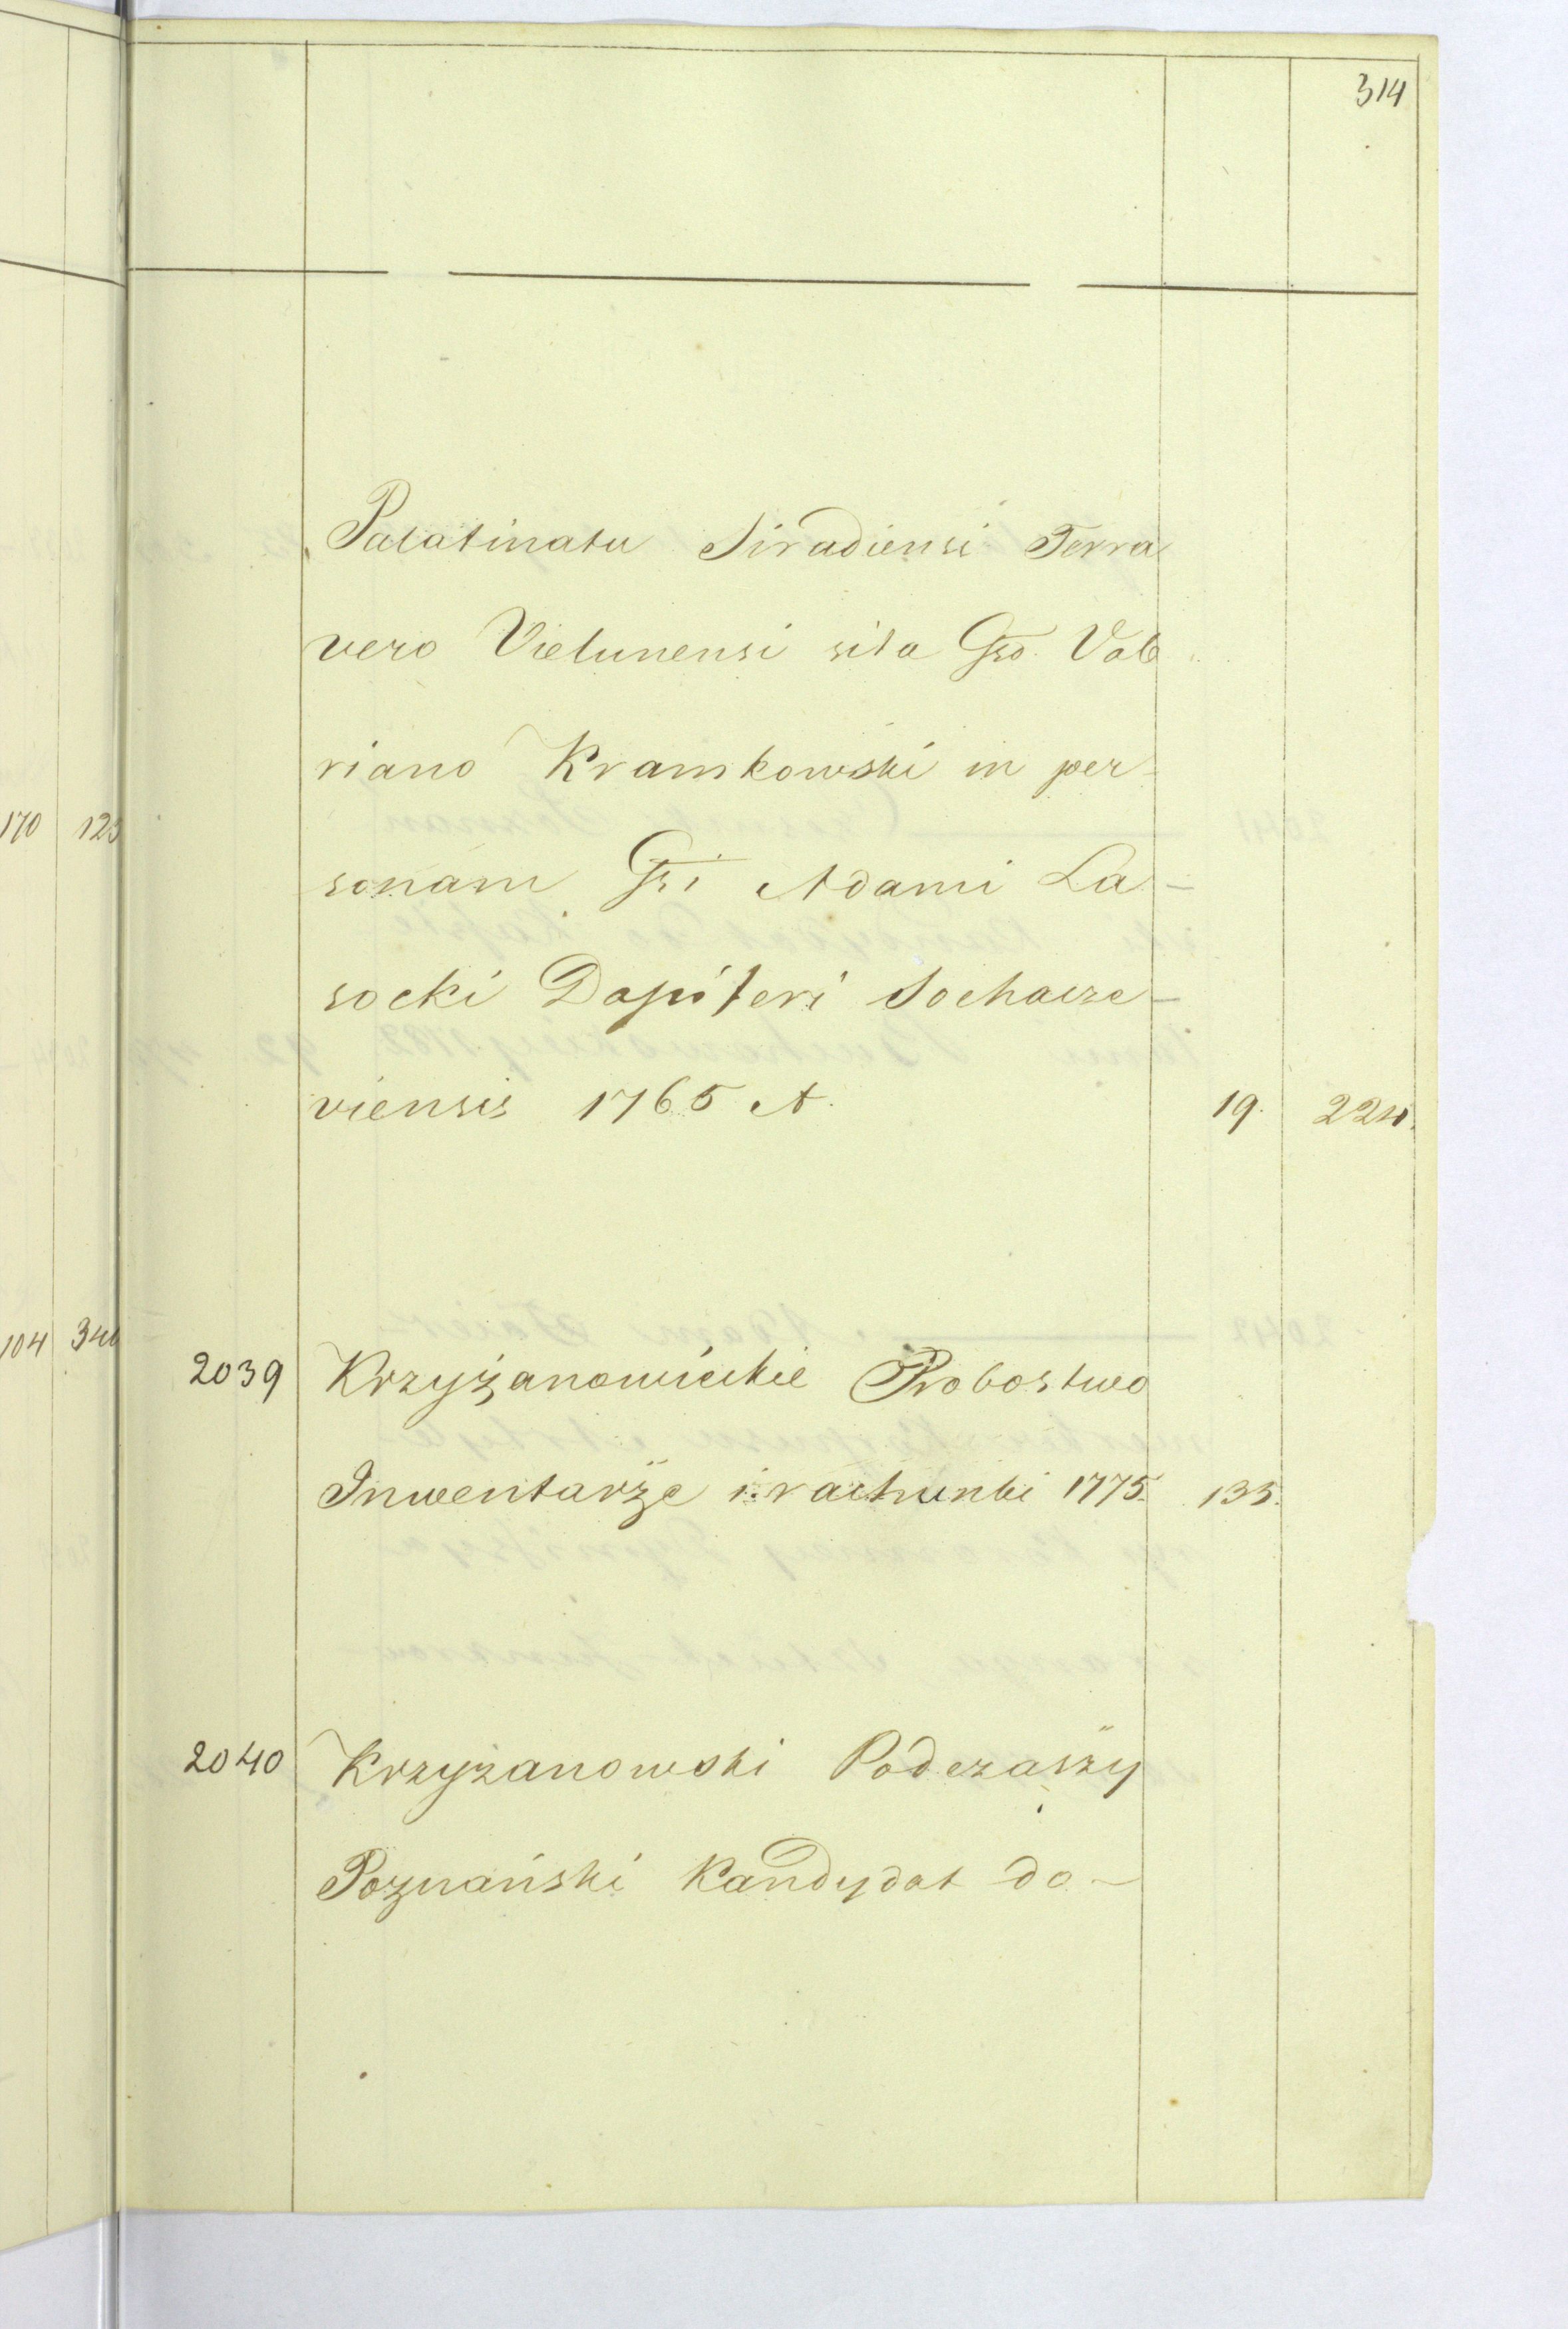 314
Palatinatu Siradiensi Terra
vero Vielunensi sita Gso. Val
riano Kramkowski in per-
sonam Gsi Adami La-
socki Dapiferi Sochacze-
viensis 1765 A. 19. 224.
170 123
104 346
2039 Krzyżanowickie Probostwo
Inwentarże i rachunki 1775. 135.
2040 Krzyzanowski Podczaszy
Poznański Kandydat do-